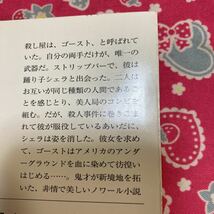 殺し屋は、ゴースト、と呼ばれて
いた。自分の両手だけが、唯一の
武器だ。ストリップバーで、彼は
踊り子シェラと出会った。二人は
お互いが同じ種類の人間であるこ
とを感じとり、美人局のコンビを
組む。だが、殺人事件に巻きこま
れて彼が服役しているあいだに、
シェラは姿を消した。彼女を求め
て、ゴーストはアメリカのアンダ
ーグラウンドを血に染めて彷徨い
はじめる……。鬼才が新境地を拓
いた、非情で美しいノワール小説